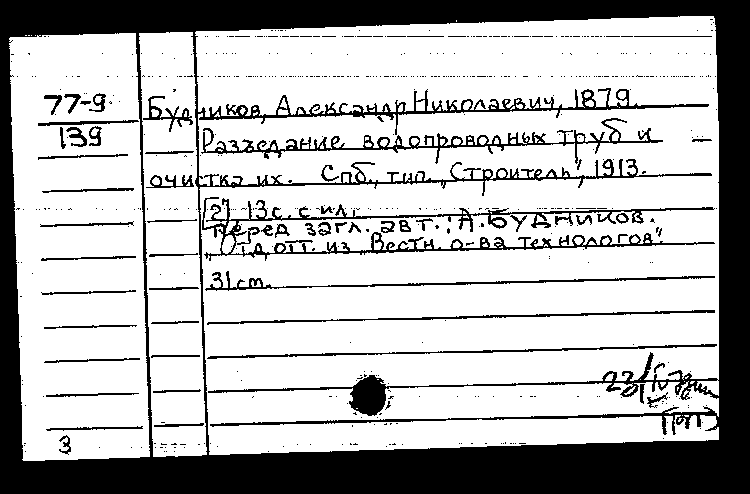 77-9
139
Будников, Александр Николаевич, 1879.
Разъедание водопроводных труб и
очистка их. Спб., тип. „Строитель", 1913.
[2] 13 с. с ил.
Перед загл. авт.: А. Будников.
„Отд. отт. из „Вестн. о-ва технологов".
31 см.
23/IV
3